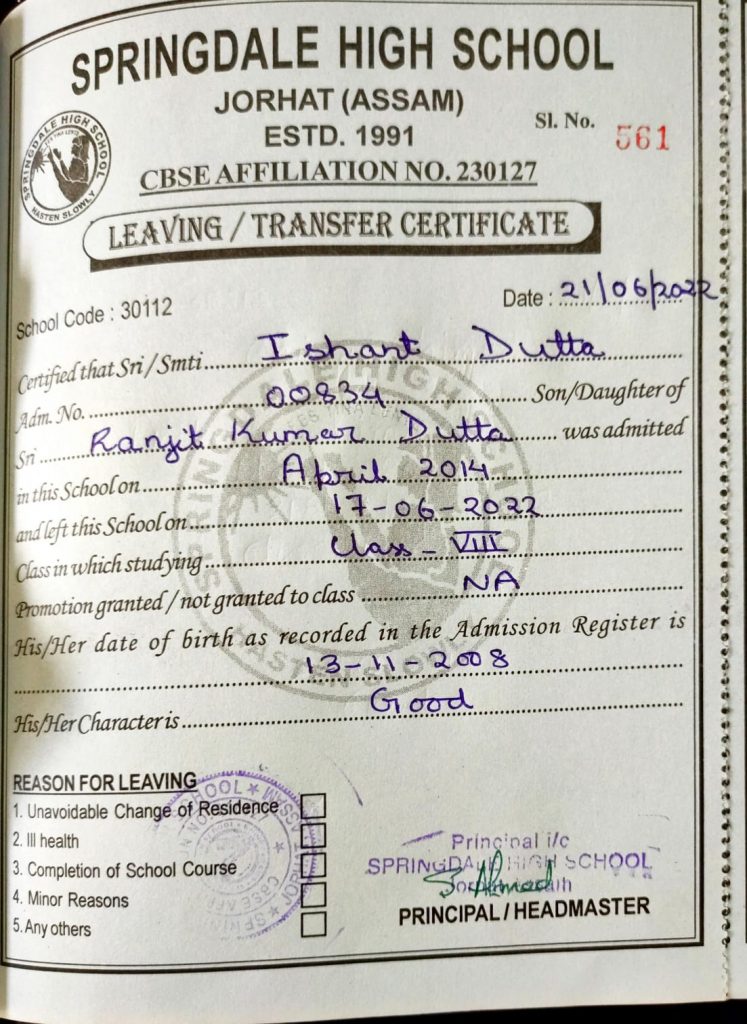 SPRINGDALE HIGH SCHOOL
JORHAT (ASSAM)
ESTD. 1991
Sl. No. 561
CBSE AFFILIATION NO. 230127
SPRINGDALE HIGH SCHOOL
HASTEN SLOWLY
LEAVING / TRANSFER CERTIFICATE
School Code : 30112
Date : 21/06/2022
Certified that Sri / Smti Ishant Dutta
Adm. No. 00834 Son/Daughter of
Sri Ranjit Kumar Dutta was admitted
in this School on April 2014
and left this School on 17-06-2022
Class in which studying Class - VIII
Promotion granted / not granted to class NA
His/Her date of birth as recorded in the Admission Register is
13-11-2008
His/Her Character is Good
REASON FOR LEAVING
1. Unavoidable Change of Residence
2. Ill health
3. Completion of School Course
4. Minor Reasons
5. Any others
Principal i/c
SPRINGDALE HIGH SCHOOL
S. Ahmed
PRINCIPAL / HEADMASTER